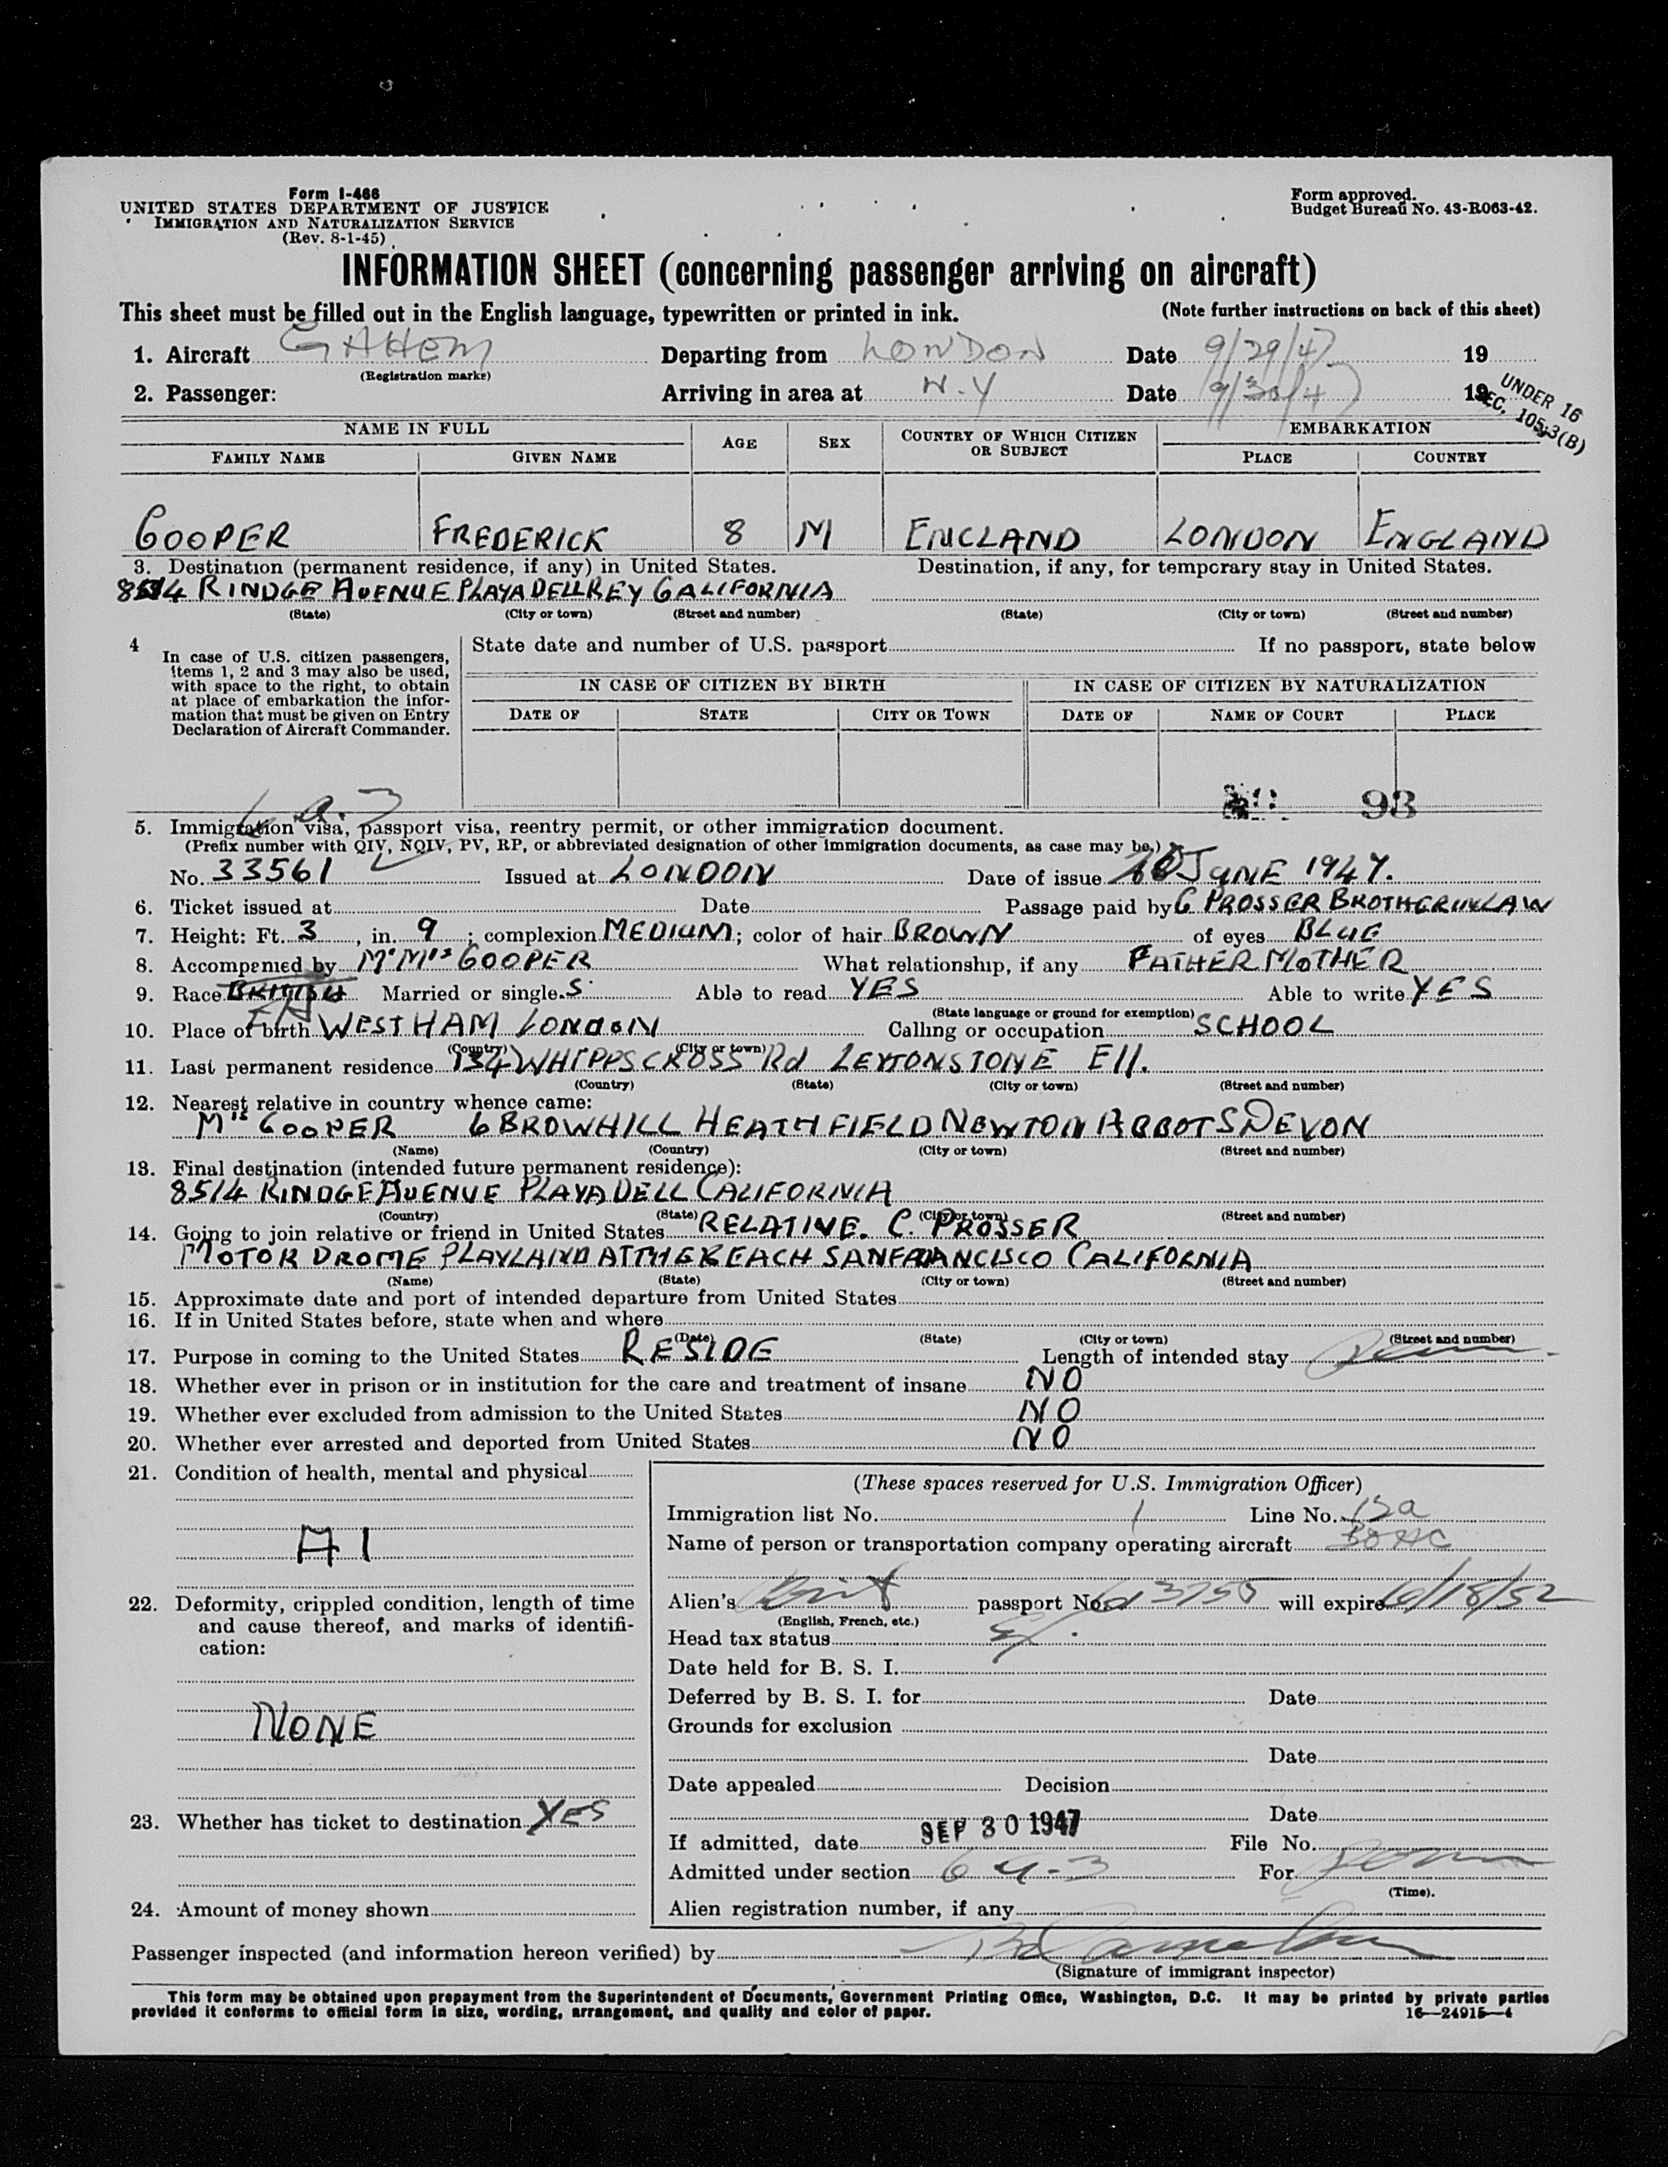 Form I-466
UNITED STATES DEPARTMENT OF JUSTICE
IMMIGRATION AND NATURALIZATION SERVICE
(Rev. 8-1-45)
Form approved.
Budget Bureau No. 43-R063-42.
INFORMATION SHEET (concerning passenger arriving on aircraft)
This sheet must be filled out in the English language, typewritten or printed in ink. (Note further instructions on back of this sheet)
1. Aircraft GAHEM Departing from LONDON Date 9/29/47 19
(Registration marks)
2. Passenger: Arriving in area at N.Y Date 9/30/47 19
UNDER 16
SEC. 105.3(B)
NAME IN FULL AGE SEX COUNTRY OF WHICH CITIZEN OR SUBJECT EMBARKATION
FAMILY NAME GIVEN NAME PLACE COUNTRY
COOPER FREDERICK 8 M ENGLAND LONDON ENGLAND
3. Destination (permanent residence, if any) in United States. Destination, if any, for temporary stay in United States.
8514 RINDGE AVENUE PLAYA DELLREY CALIFORNIA
(State) (City or town) (Street and number) (State) (City or town) (Street and number)
4 In case of U.S. citizen passengers, items 1, 2 and 3 may also be used, with space to the right, to obtain at place of embarkation the information that must be given on Entry Declaration of Aircraft Commander.
State date and number of U.S. passport If no passport, state below
IN CASE OF CITIZEN BY BIRTH IN CASE OF CITIZEN BY NATURALIZATION
DATE OF STATE CITY OR TOWN DATE OF NAME OF COURT PLACE
93
5. Immigration visa, passport visa, reentry permit, or other immigration document.
(Prefix number with QIV, NQIV, PV, RP, or abbreviated designation of other immigration documents, as case may be.)
No. 33561 Issued at LONDON Date of issue JUNE 1947.
6. Ticket issued at Date Passage paid by C PROSSER BROTHERINLAW
7. Height: Ft. 3, in. 9; complexion MEDIUM; color of hair BROWN of eyes BLUE
8. Accompanied by Mr Mrs COOPER What relationship, if any FATHER MOTHER
9. Race BRITISH Married or single S. Able to read YES Able to write YES
(State language or ground for exemption)
10. Place of birth WEST HAM LONDON Calling or occupation SCHOOL
(Country) (City or town)
11. Last permanent residence 134 WHIPPS CROSS Rd LEYTONSTONE E11.
(Country) (State) (City or town) (Street and number)
12. Nearest relative in country whence came:
Mrs COOPER 6 BROWHILL HEATHFIELD NEWTON ABBOTS DEVON
(Name) (Country) (City or town) (Street and number)
13. Final destination (intended future permanent residence):
8514 RINDGE AVENUE PLAYA DELL CALIFORNIA
(Country) (State) (City or town) (Street and number)
14. Going to join relative or friend in United States RELATIVE. C. PROSSER
MOTOR DROME PLAYLAND AT THE BEACH SANFRANCISCO CALIFORNIA
(Name) (State) (City or town) (Street and number)
15. Approximate date and port of intended departure from United States
16. If in United States before, state when and where
(Date) (State) (City or town) (Street and number)
17. Purpose in coming to the United States RESIDE Length of intended stay
18. Whether ever in prison or in institution for the care and treatment of insane NO
19. Whether ever excluded from admission to the United States NO
20. Whether ever arrested and deported from United States NO
21. Condition of health, mental and physical
A1
22. Deformity, crippled condition, length of time
and cause thereof, and marks of identifi-
cation:
NONE
23. Whether has ticket to destination YES
24. Amount of money shown
(These spaces reserved for U.S. Immigration Officer)
Immigration list No. 1 Line No. 13a
Name of person or transportation company operating aircraft BOAC
Alien's Brit passport No. will expire 6/18/52
(English, French, etc.)
Head tax status
Date held for B. S. I.
Deferred by B. S. I. for Date
Grounds for exclusion
Date
Date appealed Decision
Date
If admitted, date SEP 30 1947 File No.
Admitted under section 6 a-3 For
(Time).
Alien registration number, if any
Passenger inspected (and information hereon verified) by
(Signature of immigrant inspector)
This form may be obtained upon prepayment from the Superintendent of Documents, Government Printing Office, Washington, D.C. It may be printed by private parties
provided it conforms to official form in size, wording, arrangement, and quality and color of paper. 16—24915-4